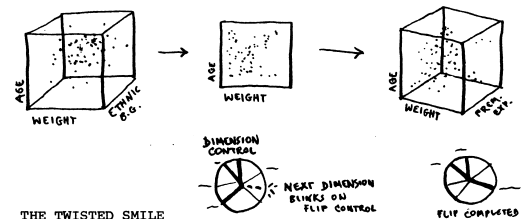 AGE
WEIGHT
ETHNIC
B.G.
AGE
WEIGHT
AGE
WEIGHT
PREM.
EXP.
DIMENSION
CONTROL
NEXT DIMENSION
BLINKS ON
FLIP CONTROL
FLIP COMPLETED
THE TWISTED SMILE